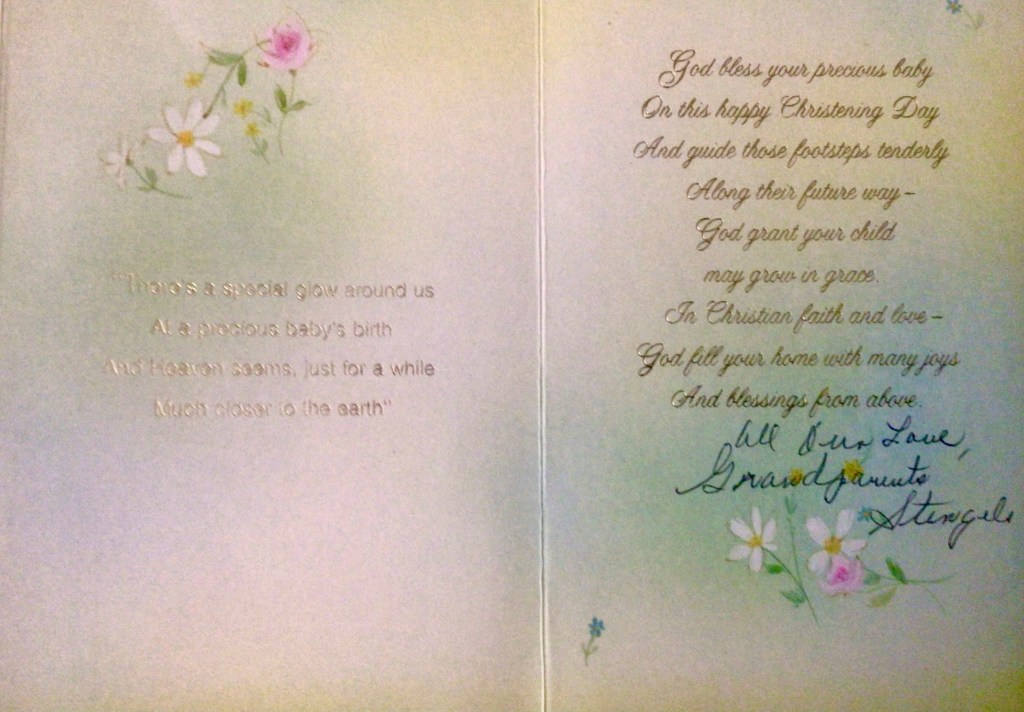 "There's a special glow around us
At a precious baby's birth
And Heaven seems, just for a while
Much closer to the earth"
God bless your precious baby
On this happy Christening Day
And guide those footsteps tenderly
Along their future way–
God grant your child
may grow in grace.
In Christian faith and love–
God fill your home with many joys
And blessings from above.
All Our Love,
Grandparents
Stengels